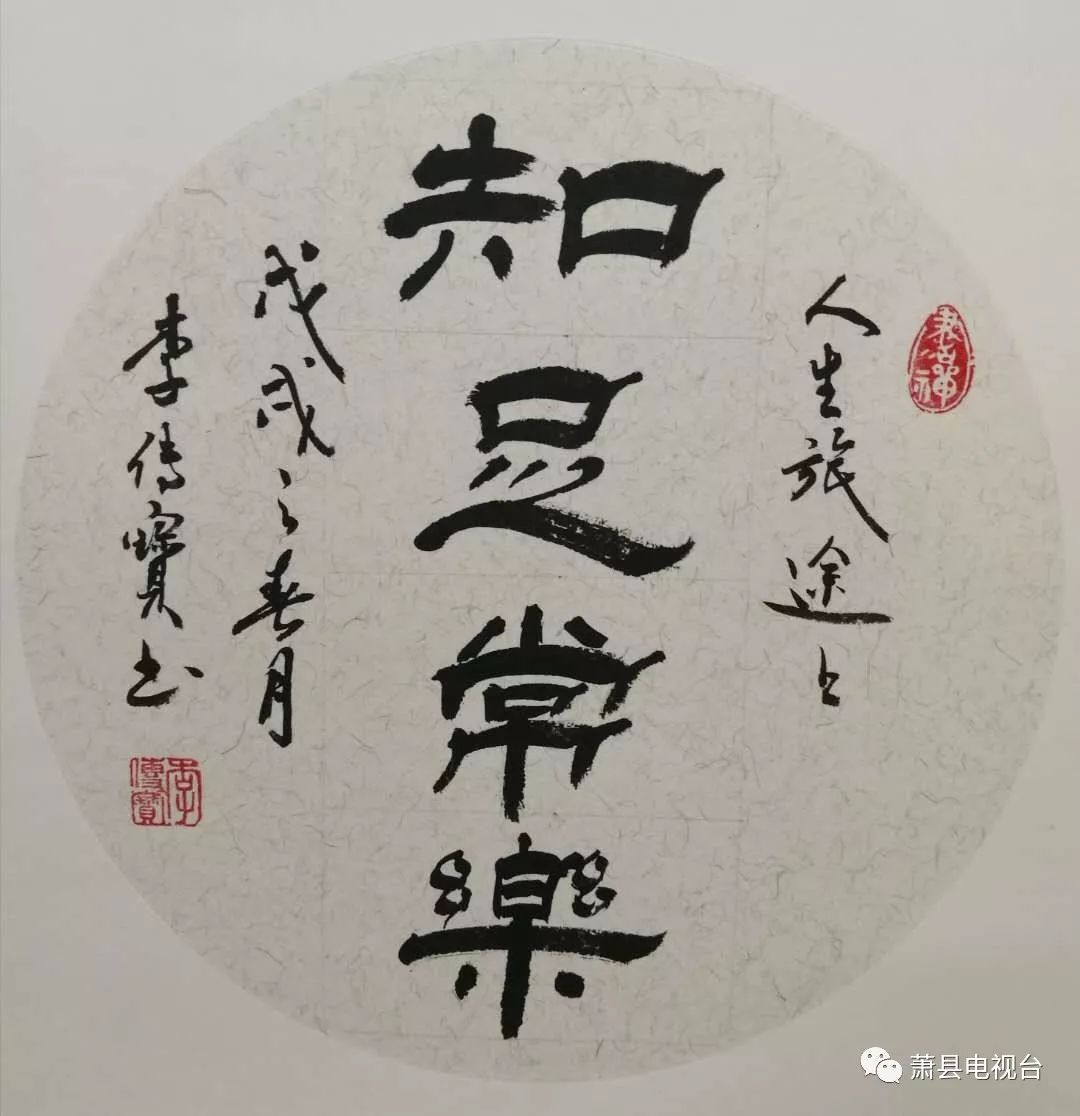 人生旅途上
知足常樂
戊戌之春月
李傳寶书
李傳寶
萧县电视台